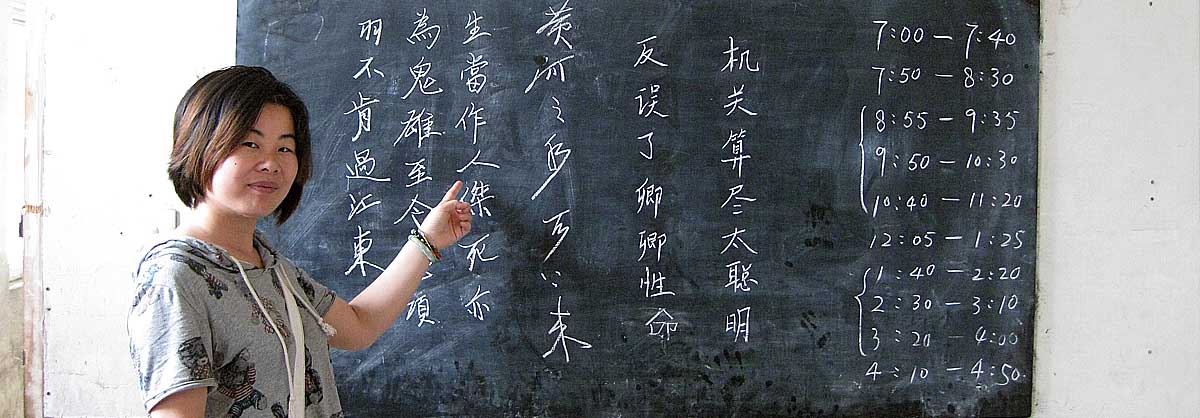 7:00 — 7:40
7:50 — 8:30
8:55 — 9:35
9:50 — 10:30
10:40 — 11:20
12:05 — 1:25
1:40 — 2:20
2:30 — 3:10
3:20 — 4:00
4:10 — 4:50
机关算尽太聪明
反误了卿卿性命
黄河之水天上来
生當作人傑死亦
為鬼雄至今項
羽不肯過江東